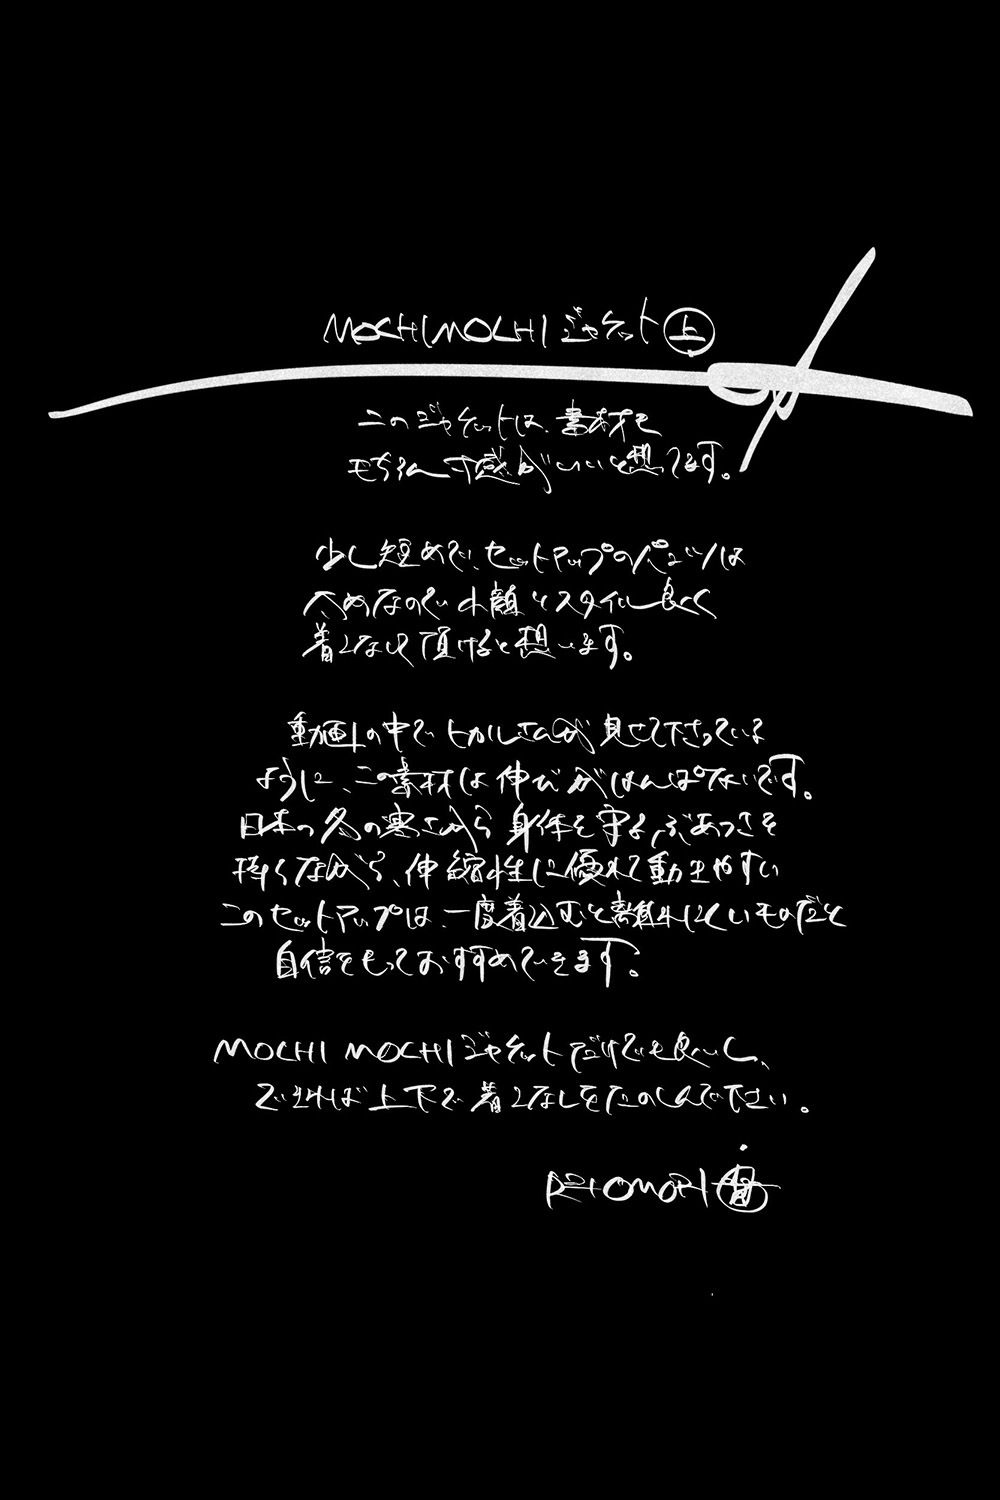 MOCHIMOCHIジャケット上
このジャケットは、素材も
もちろん寸感がいいと想ってます。
少し短めで、セットアップのパンツは
太めなので小顔でスタイル良く
着こなして頂けると想います。
動画の中でトカレさんが見せて下さっている
ように、この素材は伸びがはんぱないです。
日本の冬の寒さから身体を守るぶあつさを
持ちながら、伸縮性に優れて動きやすい
このセットアップは、一度着込むと離れにくいものだと
自信をもっておすすめできます。
MOCHI MOCHIジャケットだけでも良いし、
できれば上下で着こなしをたのしんで下さい。